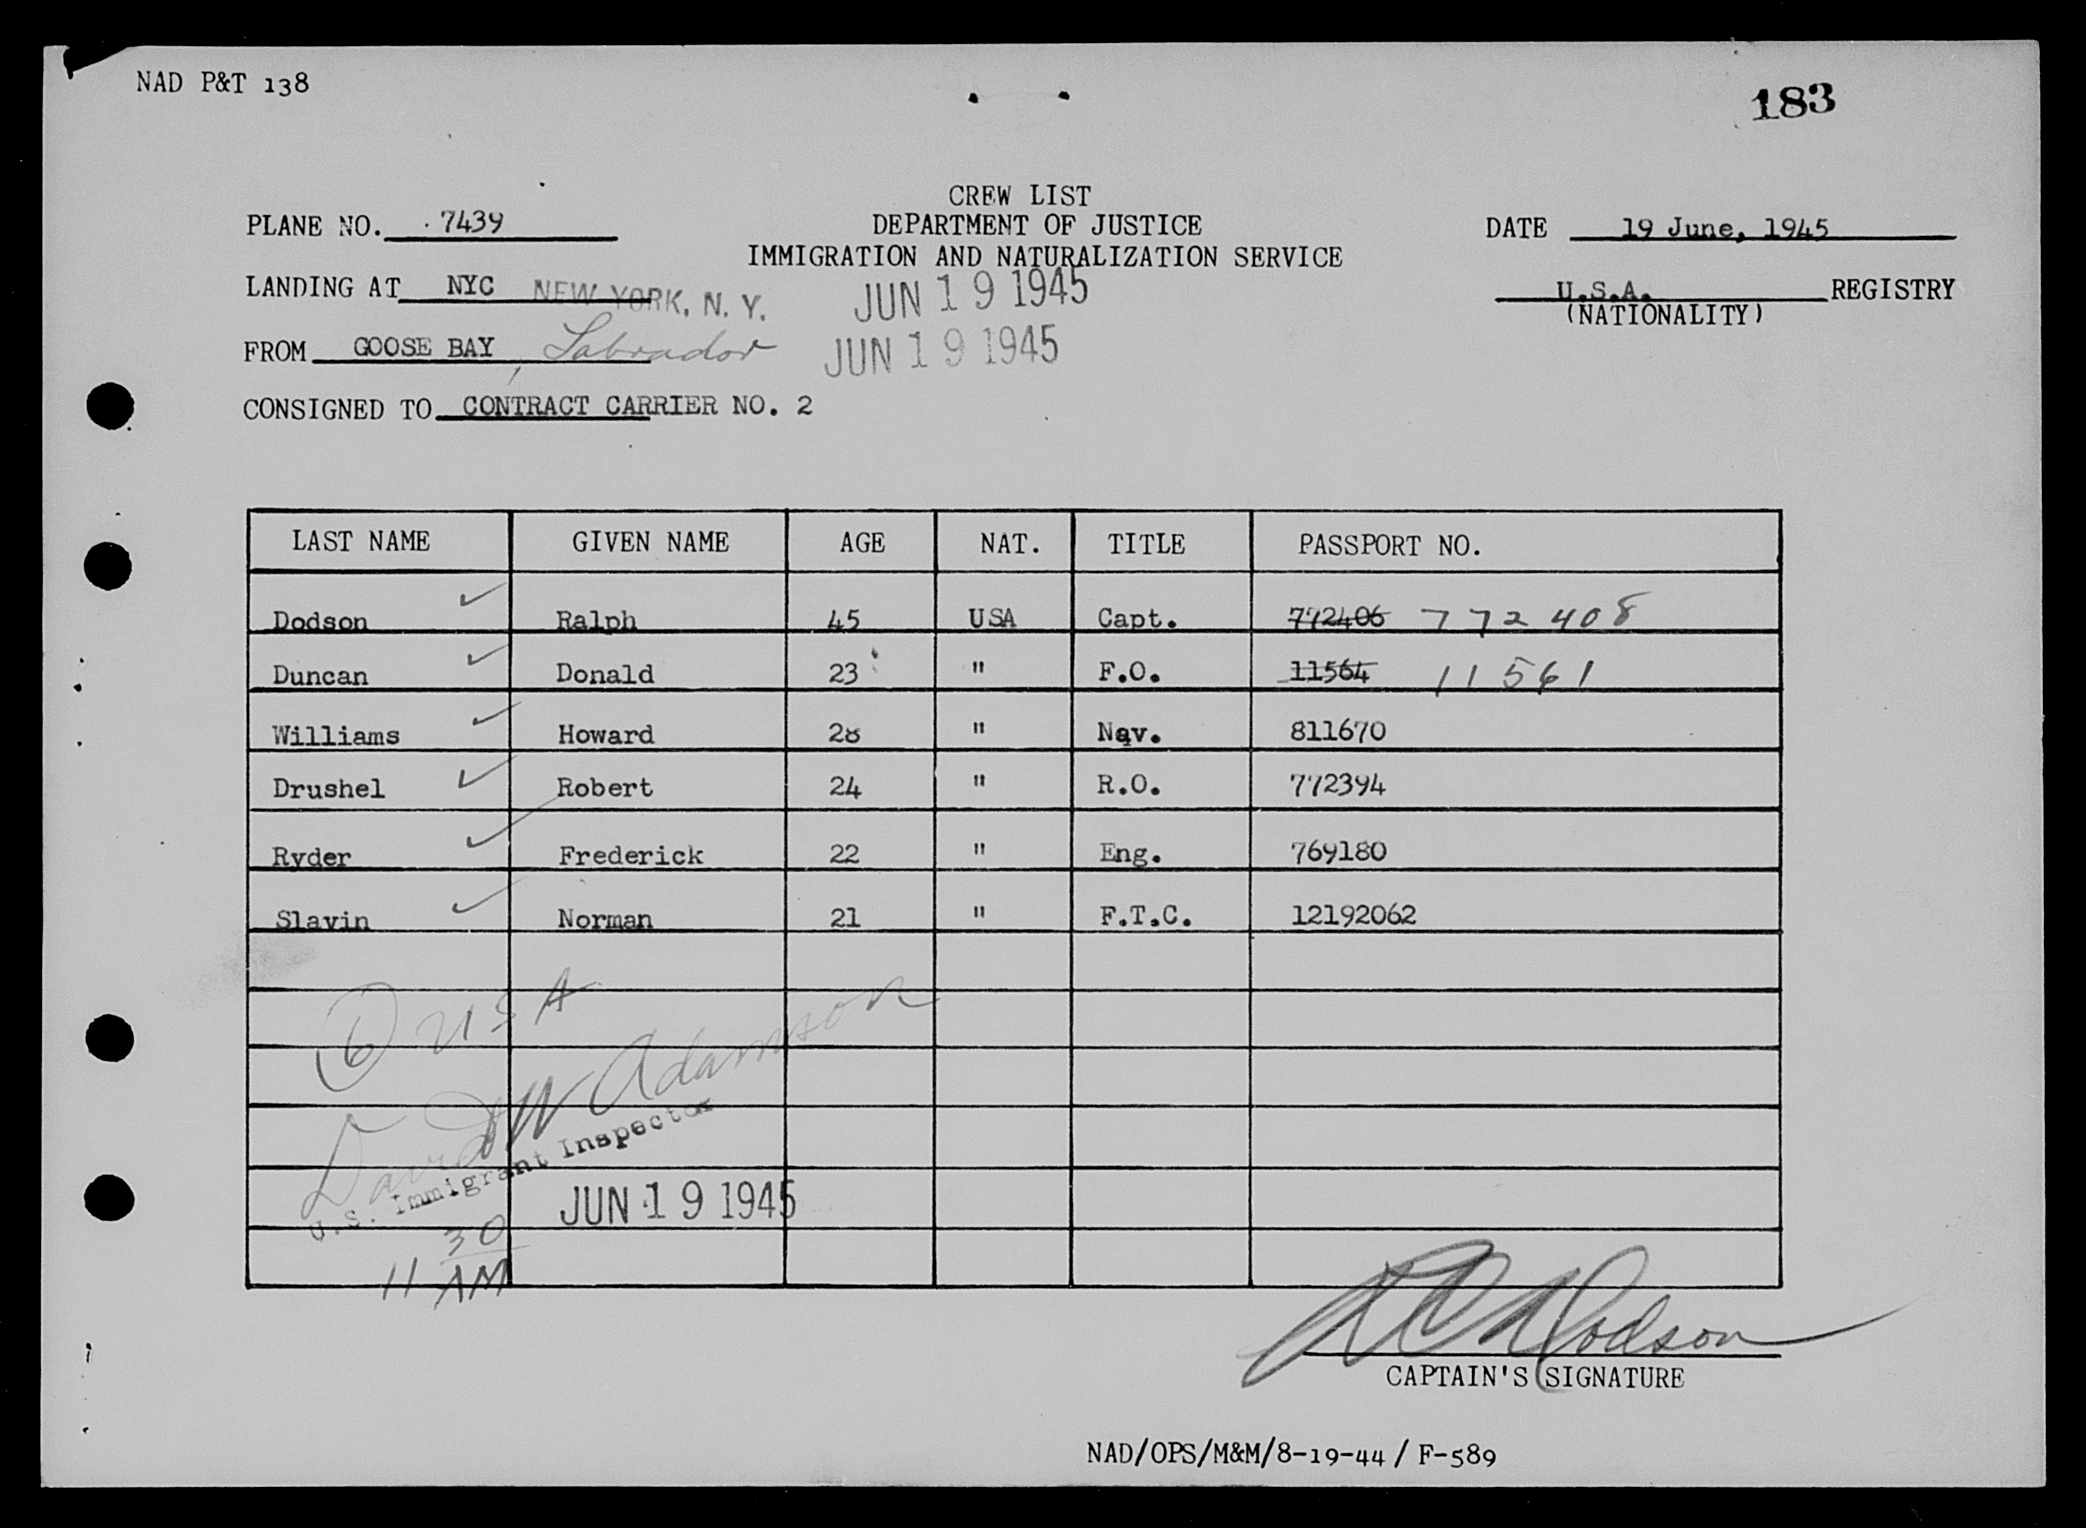 NAD P&T 138
183
CREW LIST
PLANE NO. 7439 DEPARTMENT OF JUSTICE DATE 19 June, 1945
IMMIGRATION AND NATURALIZATION SERVICE
LANDING AT NYC NEW YORK, N. Y. JUN 19 1945 U.S.A. REGISTRY
(NATIONALITY)
FROM GOOSE BAY, Labrador JUN 19 1945
CONSIGNED TO CONTRACT CARRIER NO. 2
LAST NAME GIVEN NAME AGE NAT. TITLE PASSPORT NO.
Dodson ✓ Ralph 45 USA Capt. 772406 772408
Duncan ✓ Donald 23 " F.O. 11564 11561
Williams ✓ Howard 28 " Nav. 811670
Drushel ✓ Robert 24 " R.O. 772394
Ryder ✓ Frederick 22 " Eng. 769180
Slavin ✓ Norman 21 " F.T.C. 12192062
6 USA
David W Adamson
U.S. Immigrant Inspector
JUN 19 1945
11 30 AM
Dodson
CAPTAIN'S SIGNATURE
NAD/OPS/M&M/8-19-44 / F-589